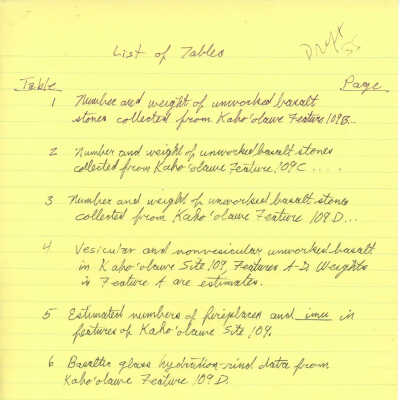 Draft
List of Tables
Table Page
1 Number and weight of unworked basalt
stones collected from Kaho'olawe Feature 109B...
2 Number and weight of unworked basalt stones
collected from Kaho'olawe Feature 109C ....
3 Number and weight of unworked basalt stones
collected from Kaho'olawe Feature 109D...
4 Vesicular and nonvesicular unworked basalt
in Kaho'olawe Site 109, Features A-D. Weights
in Feature A are estimates.
5 Estimated numbers of fireplaces and imu in
features of Kaho'olawe Site 109.
6 Basaltic glass hydration-rind data from
Kaho'olawe Feature 109D.